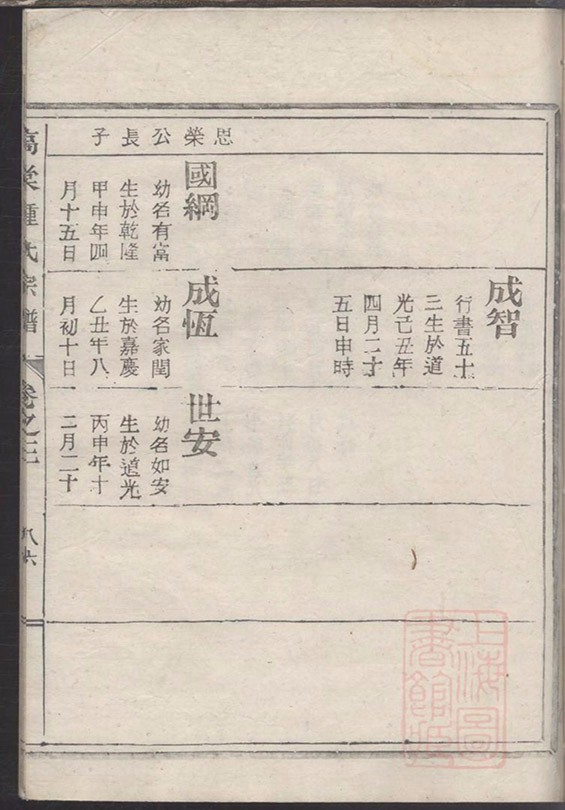 恩榮公長子
成智
行書五十
三生於道
光己丑年
四月二才
五日申時
國綱
幼名有富
生於乾隆
甲申年四
月十五日
成恆
幼名家閏
生於嘉慶
乙丑年八
月初十日
世安
幼名如安
生於道光
丙申年十
二月二十
鍾氏宗譜
卷之三
八六
上海圖
書館藏